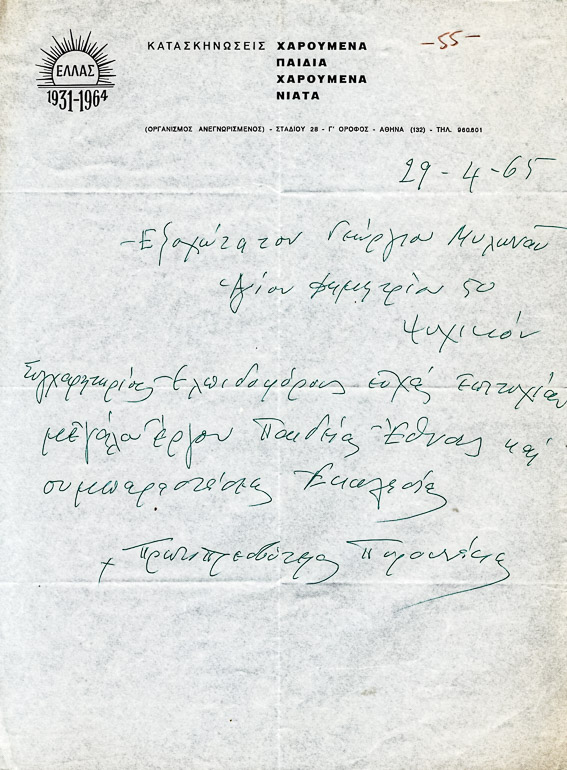 ΕΛΛΑΣ
1931-1964
ΚΑΤΑΣΚΗΝΩΣΕΙΣ ΧΑΡΟΥΜΕΝΑ
ΠΑΙΔΙΑ
ΧΑΡΟΥΜΕΝΑ
ΝΙΑΤΑ
-55-
(ΟΡΓΑΝΙΣΜΟΣ ΑΝΕΓΝΩΡΙΣΜΕΝΟΣ) - ΣΤΑΔΙΟΥ 28 - Γ' ΟΡΟΦΟΣ - ΑΘΗΝΑ (132) - ΤΗΛ. 960.801
29-4-65
-Εξοχώτατον Γεώργιον Μυλωνάν
Αγίου Δημητρίου 50
Ψυχικόν
Συγχαρητηρίους Ελπιδοφόρους ευχάς Επιτυχίαν
μεγάλο Έργον Παιδείας Έθνους και
συμπαραστάσεως Εκκλησίας
+ Πρωτοπρεσβύτερος